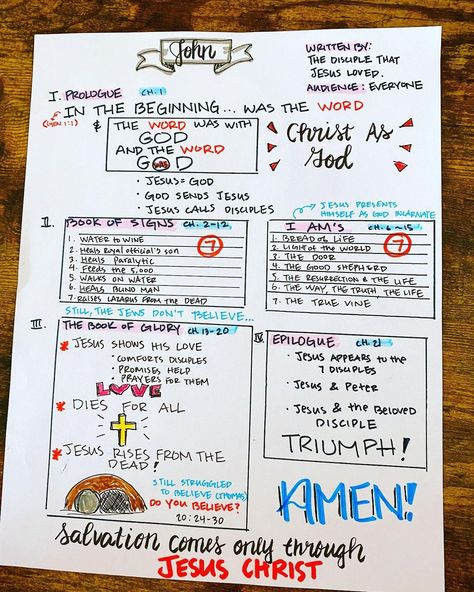 John
WRITTEN BY:
THE DISCIPLE THAT
JESUS LOVED.
AUDIENCE: EVERYONE
I. PROLOGUE CH. 1
IN THE BEGINNING... WAS THE WORD
(GEN 1:1)
& THE WORD WAS WITH
GOD
AND THE WORD
WAS
GOD
Christ As
God
• JESUS = GOD
• GOD SENDS JESUS
• JESUS CALLS DISCIPLES
JESUS PRESENTS
HIMSELF AS GOD INCARNATE
II. BOOK OF SIGNS CH. 2-12
7
1. WATER TO WINE
2. Heals Royal official's son
3. Heals Paralytic
4. Feeds the 5,000
5. WALKS ON WATER
6. HEALS BLIND MAN
7. RAISES LAZARUS FROM THE DEAD
STILL, THE JEWS DON'T BELIEVE...
I AM'S CH. 6-15
7
1. BREAD of LIFE
2. LIGHT of the WORLD
3. THE DOOR
4. THE GOOD SHEPHERD
5. THE RESURRECTION & THE LIFE
6. THE WAY, THE TRUTH, THE LIFE
7. THE TRUE VINE
III. THE BOOK OF GLORY CH. 13-20
* JESUS SHOWS HIS LOVE
• COMFORTS DISCIPLES
• PROMISES HELP
• PRAYERS FOR THEM
LOVE
* DIES FOR ALL
* JESUS RISES FROM THE
DEAD!
STILL STRUGGLED
TO BELIEVE (THOMAS)
DO YOU BELIEVE?
20:24-30
IV. EPILOGUE CH. 21
• JESUS APPEARS TO THE
7 DISCIPLES
• JESUS & PETER
• JESUS & the BELOVED
DISCIPLE
TRIUMPH!
AMEN!
Salvation comes only through
JESUS CHRIST